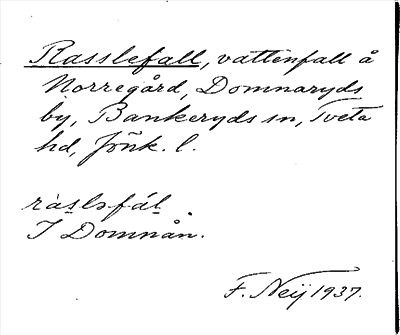 Rasslefall, vattenfall å
Norregård, Domnaryds
by, Bankeryds sn, Tveta
hd, Jönk. l.
ràslsfál.
I Domnån.
F. Neij 1937.